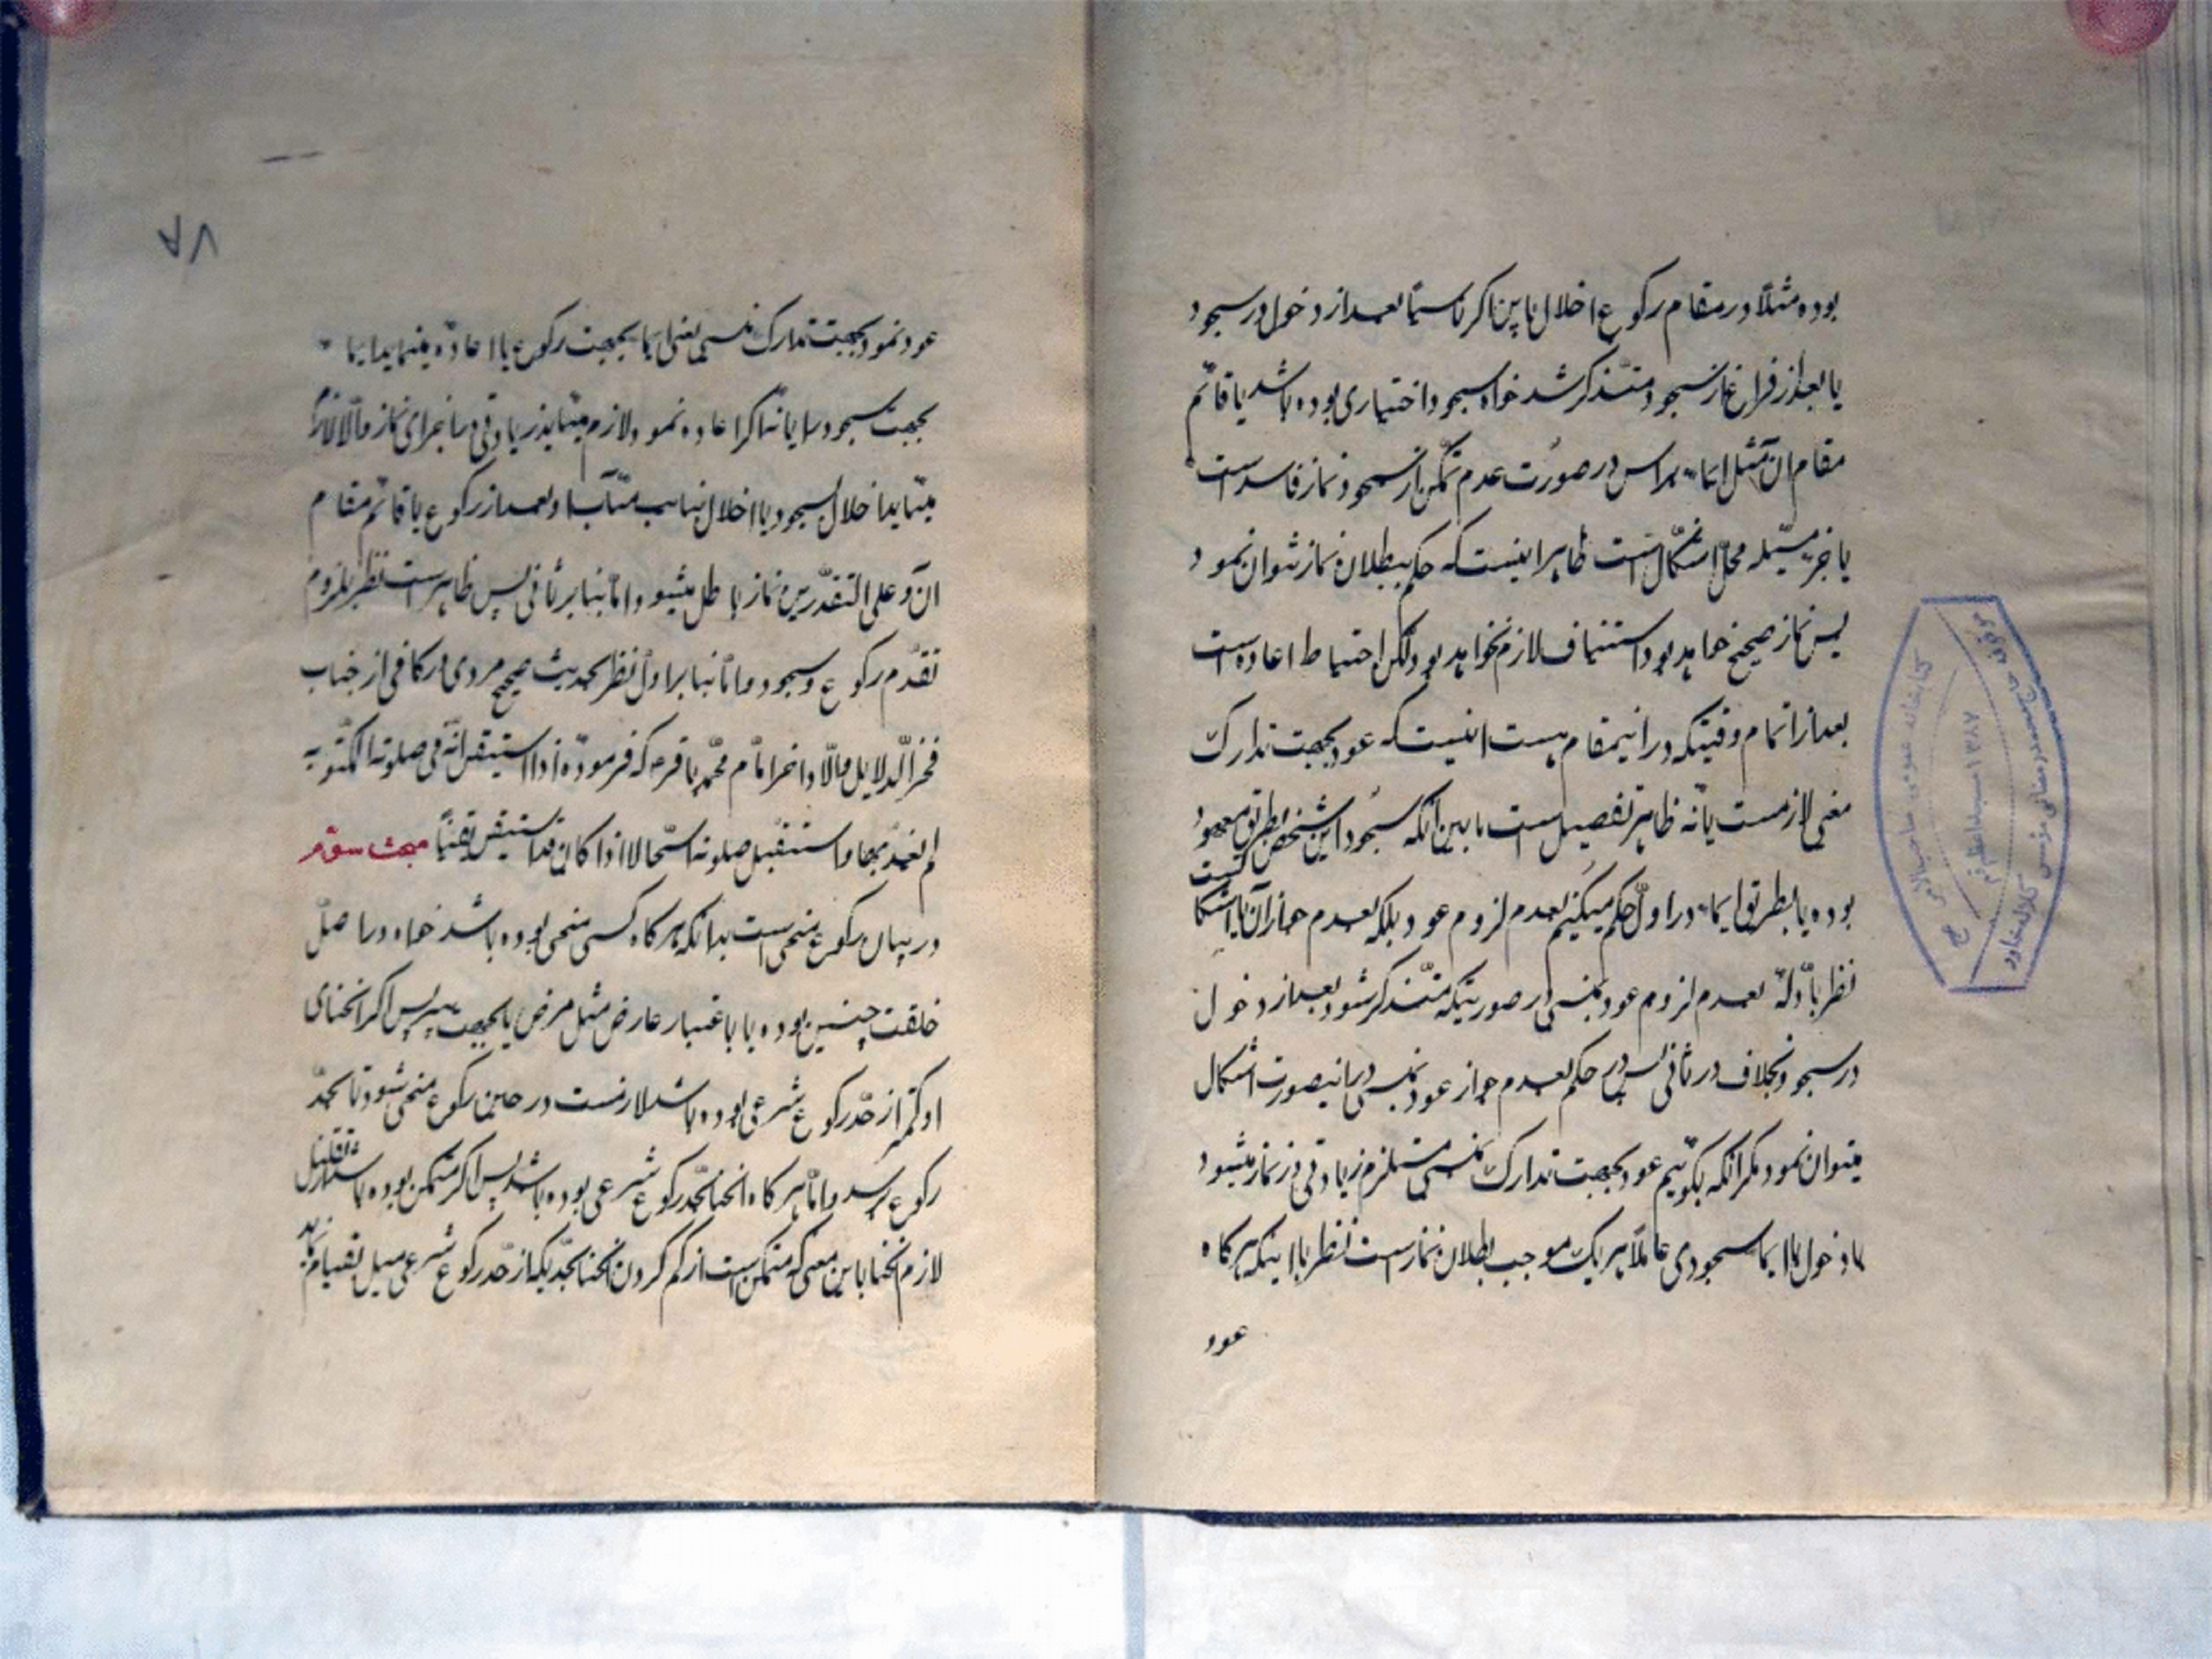 بوده مثلًا در مقام رکوع اخلال باین ناکر ناسیًا بعد از دخول در سجود
یا بعد از فراغ از سجود متذکر شد خواه سجود اختیاری بوده باشد یا قائم
مقام ان مثل ایماء براس در صورت عدم تمکن از سجود نماز فاسد است
یا خیر مسئله محل اشکال است ظاهر اینست که حکم ببطلان نماز نتوان نمود
پس نماز صحیح خواهد بود و استیناف لازم نخواهد بود و لکن احتیاط اعاده است
بعد از اتمام وقتیکه در اینمقام هست اینست که عود بجهت تدارک
منسی لازمست یا نه ظاهر تفصیل است ما بین انکه سجود این شخص بطریق معهود
بوده یا بطریق ایماء در اول حکم میکنیم بعدم لزوم عود بلکه بعدم جواز آن
نظر بادله بعدم لزوم عود بمنسی در صورتیکه متذکر شود بعد از دخول
در سجود بخلاف در ثانی پس در حکم بعدم جواز عود بمنسی در اینصورت اشکال
میتوان نمود مگر انکه بگوئیم عود بجهت تدارک منسی مستلزم زیادتی در نماز میشود
با دخول با ایماء سجودی عامدًا هر یک موجب بطلان نماز است نظر باینکه هر کاه
عود
۸۷
عود نمود بجهت تدارک منسی یعنی ایماء بجهت رکوع یا اعاده مینماید ایماء
بجهت سجود را یا نه اکر اعاده نمود لازم میاید زیادتی در اجزای نماز و الا لازم
میاید اخلال بسجود یا اخلال بنایب مناب او بعد از رکوع یا قائم مقام
ان و علی التقدیرین نماز باطل میشود و اما بنابر ثانی پس ظاهر است نظر بلزوم
تقدم رکوع بر سجود و اما بنابر اول نظر بحدیث صحیح مروی در کافی از جناب
امام محمد باقر که فرموده اذا استیقن انه زاد فی صلوته المکتوبه
لم یعتد بها و استقبل صلوته استقبالا اذا کان قد استیقن یقینًا مبحث سوم
در بیان رکوع منحنی است بدانکه هر کاه کسی منحنی بوده باشد خواه در اصل
خلقت چنین بوده یا باعتبار عارض مثل مرض یا بجهت پیری پس اکر انحنای
او کمتر از حد رکوع شرعی بوده باشد لازمست در حین رکوع منحنی شود تا بحد
رکوع برسد و اما هر کاه انحنا بحد رکوع شرعی بوده باشد پس اکر متمکن بوده باشد از تقلیل
لازم انحنا باین معنی که متمکن است از کم کردن انحنا بحدیکه از حد رکوع شرعی میل بقیام نماید
کتابخانه عمومی
۱۳۸۷